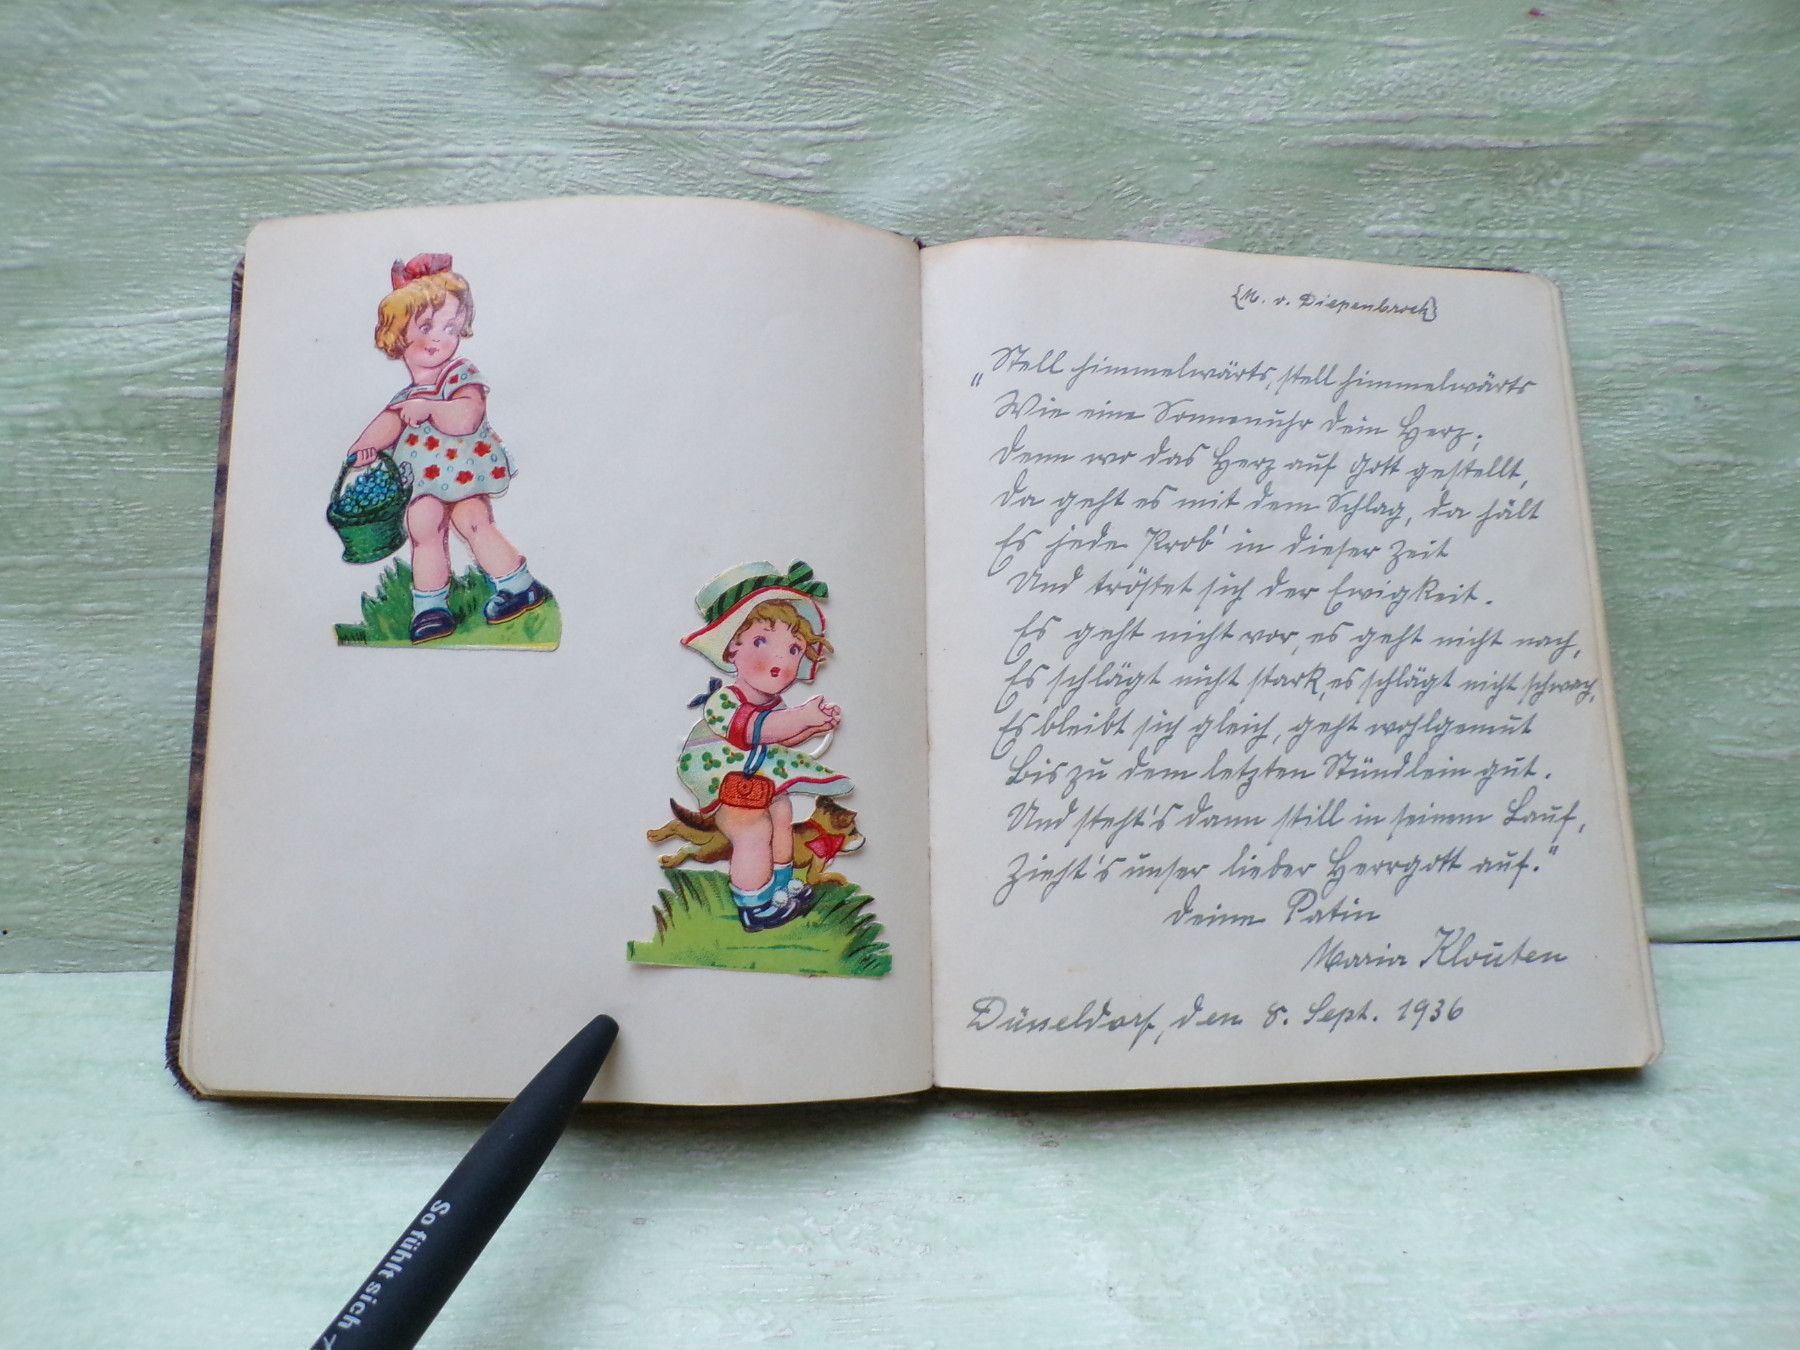 {M. v. Diepenbrock}
„Stell himmelwärts, stell himmelwärts
Wie eine Sonnenuhr dein Herz;
Denn wo das Herz auf Gott gestellt,
Da geht es mit dem Schlag, da hält
Es jede Prob' in dieser Zeit
Und tröstet sich der Ewigkeit.
Es geht nicht vor, es geht nicht nach,
Es schlägt nicht stark, es schlägt nicht schwach,
Es bleibt sich gleich, geht wohlgemut
Bis zu dem letzten Stündlein gut.
Und steht's dann still in seinem Lauf,
Zieht's unser lieber Herrgott auf."
Deine Patin
Maria Klouten
Düsseldorf, den 8. Sept. 1936
So fühlt sich